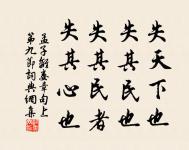 失天下也
失其民也
失其民者
失其心也
孟子離婁章句上
第九節詞典網集